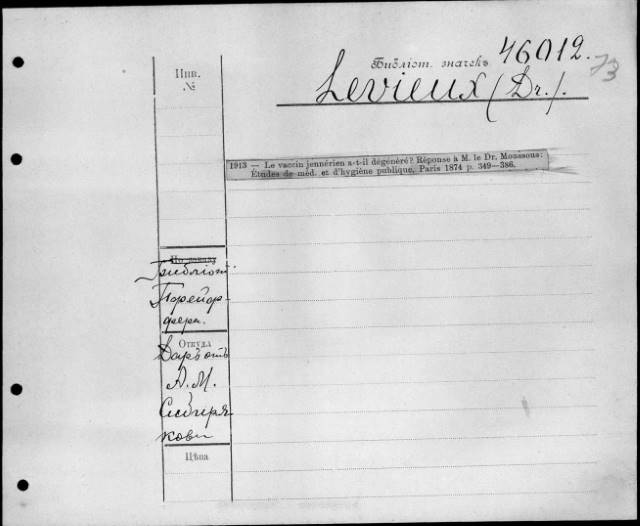 Инв.
№
Библіот. знакъ 46012.
73
Levieux (Dr.).
1913 — Le vaccin jennérien a-t-il dégénéré? Réponse à M. le Dr. Moussous:
Études de méd. et d'hygiène publique, Paris 1874 p. 349—386.
По заказу
Библіот.
Откуда
Даръ отъ
А. М.
Цѣна